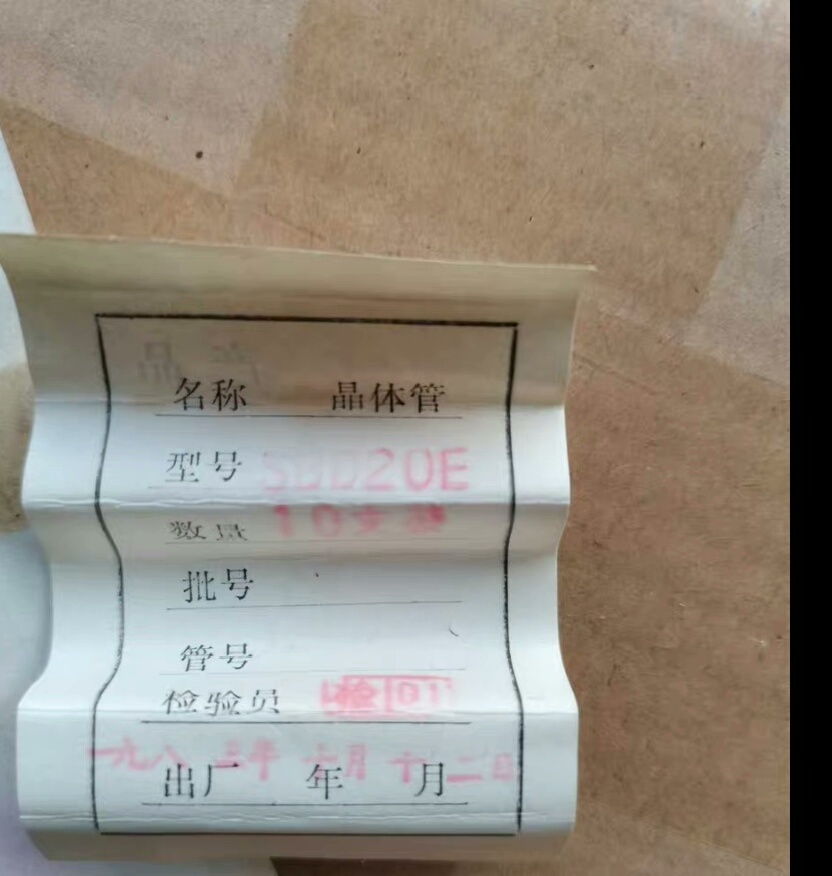 名称 晶体管
型号 3DD20E
数量 10支装
批号
管号
检验员 检 01
一九八三年 月十二日
出厂 年 月